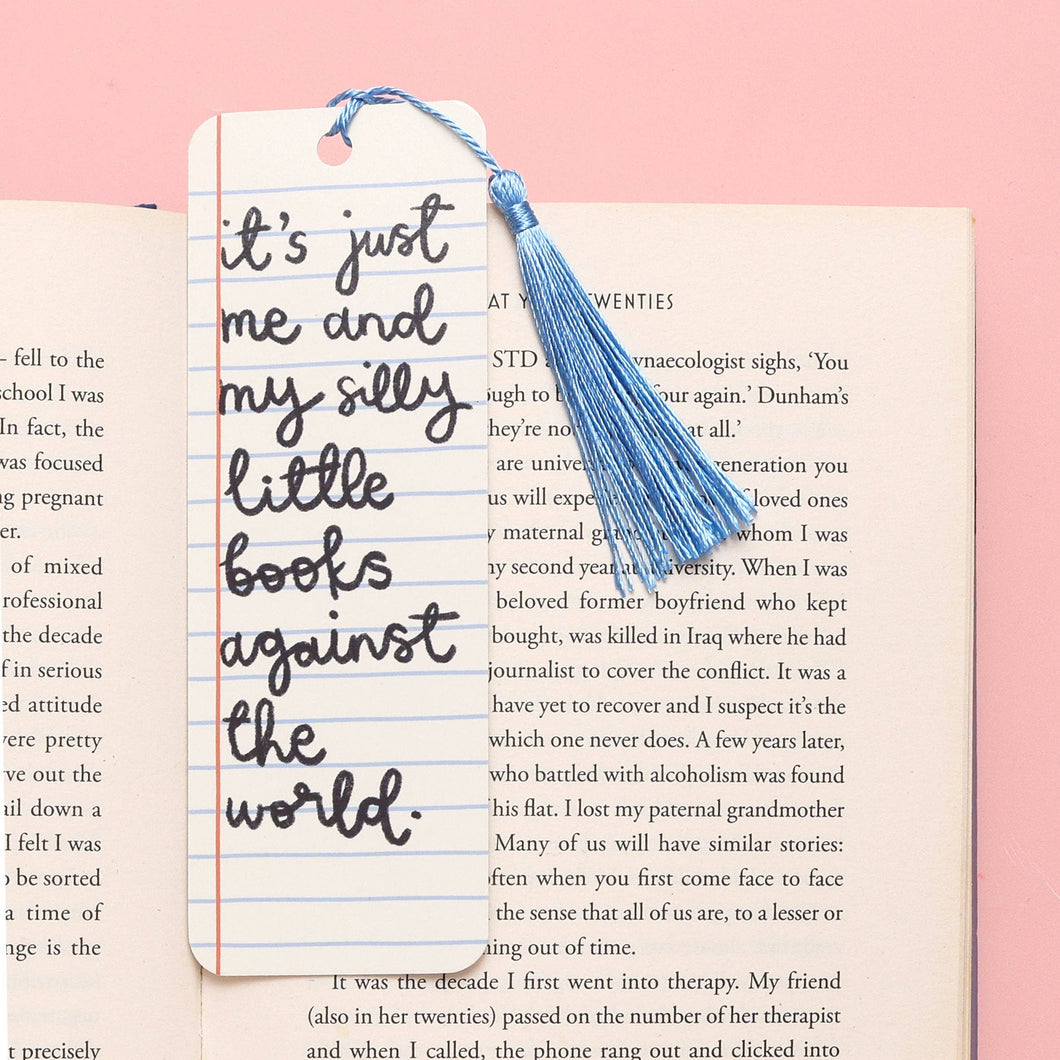 it's just
me and
my silly
little
books
against
the
world.
fell to the
school I was
In fact, the
was focused
pregnant
of mixed
the decade
in serious
attitude
were pretty
out the
down a
I felt I was
be sorted
a time of
is the
precisely
AT TWENTIES
STD sighs, 'You
again.' Dunham's
they're at all.'
are generation you
us will loved ones
maternal whom I was
second year at university. When I was
beloved former boyfriend who kept
bought, was killed in Iraq where he had
journalist to cover the conflict. It was a
have yet to recover and I suspect it's the
which one never does. A few years later,
who battled with alcoholism was found
his flat. I lost my paternal grandmother
Many of us will have similar stories:
often when you first come face to face
the sense that all of us are, to a lesser or
out of time.
It was the decade I first went into therapy. My friend
(also in her twenties) passed on the number of her therapist
and when I called, the phone rang out and clicked into